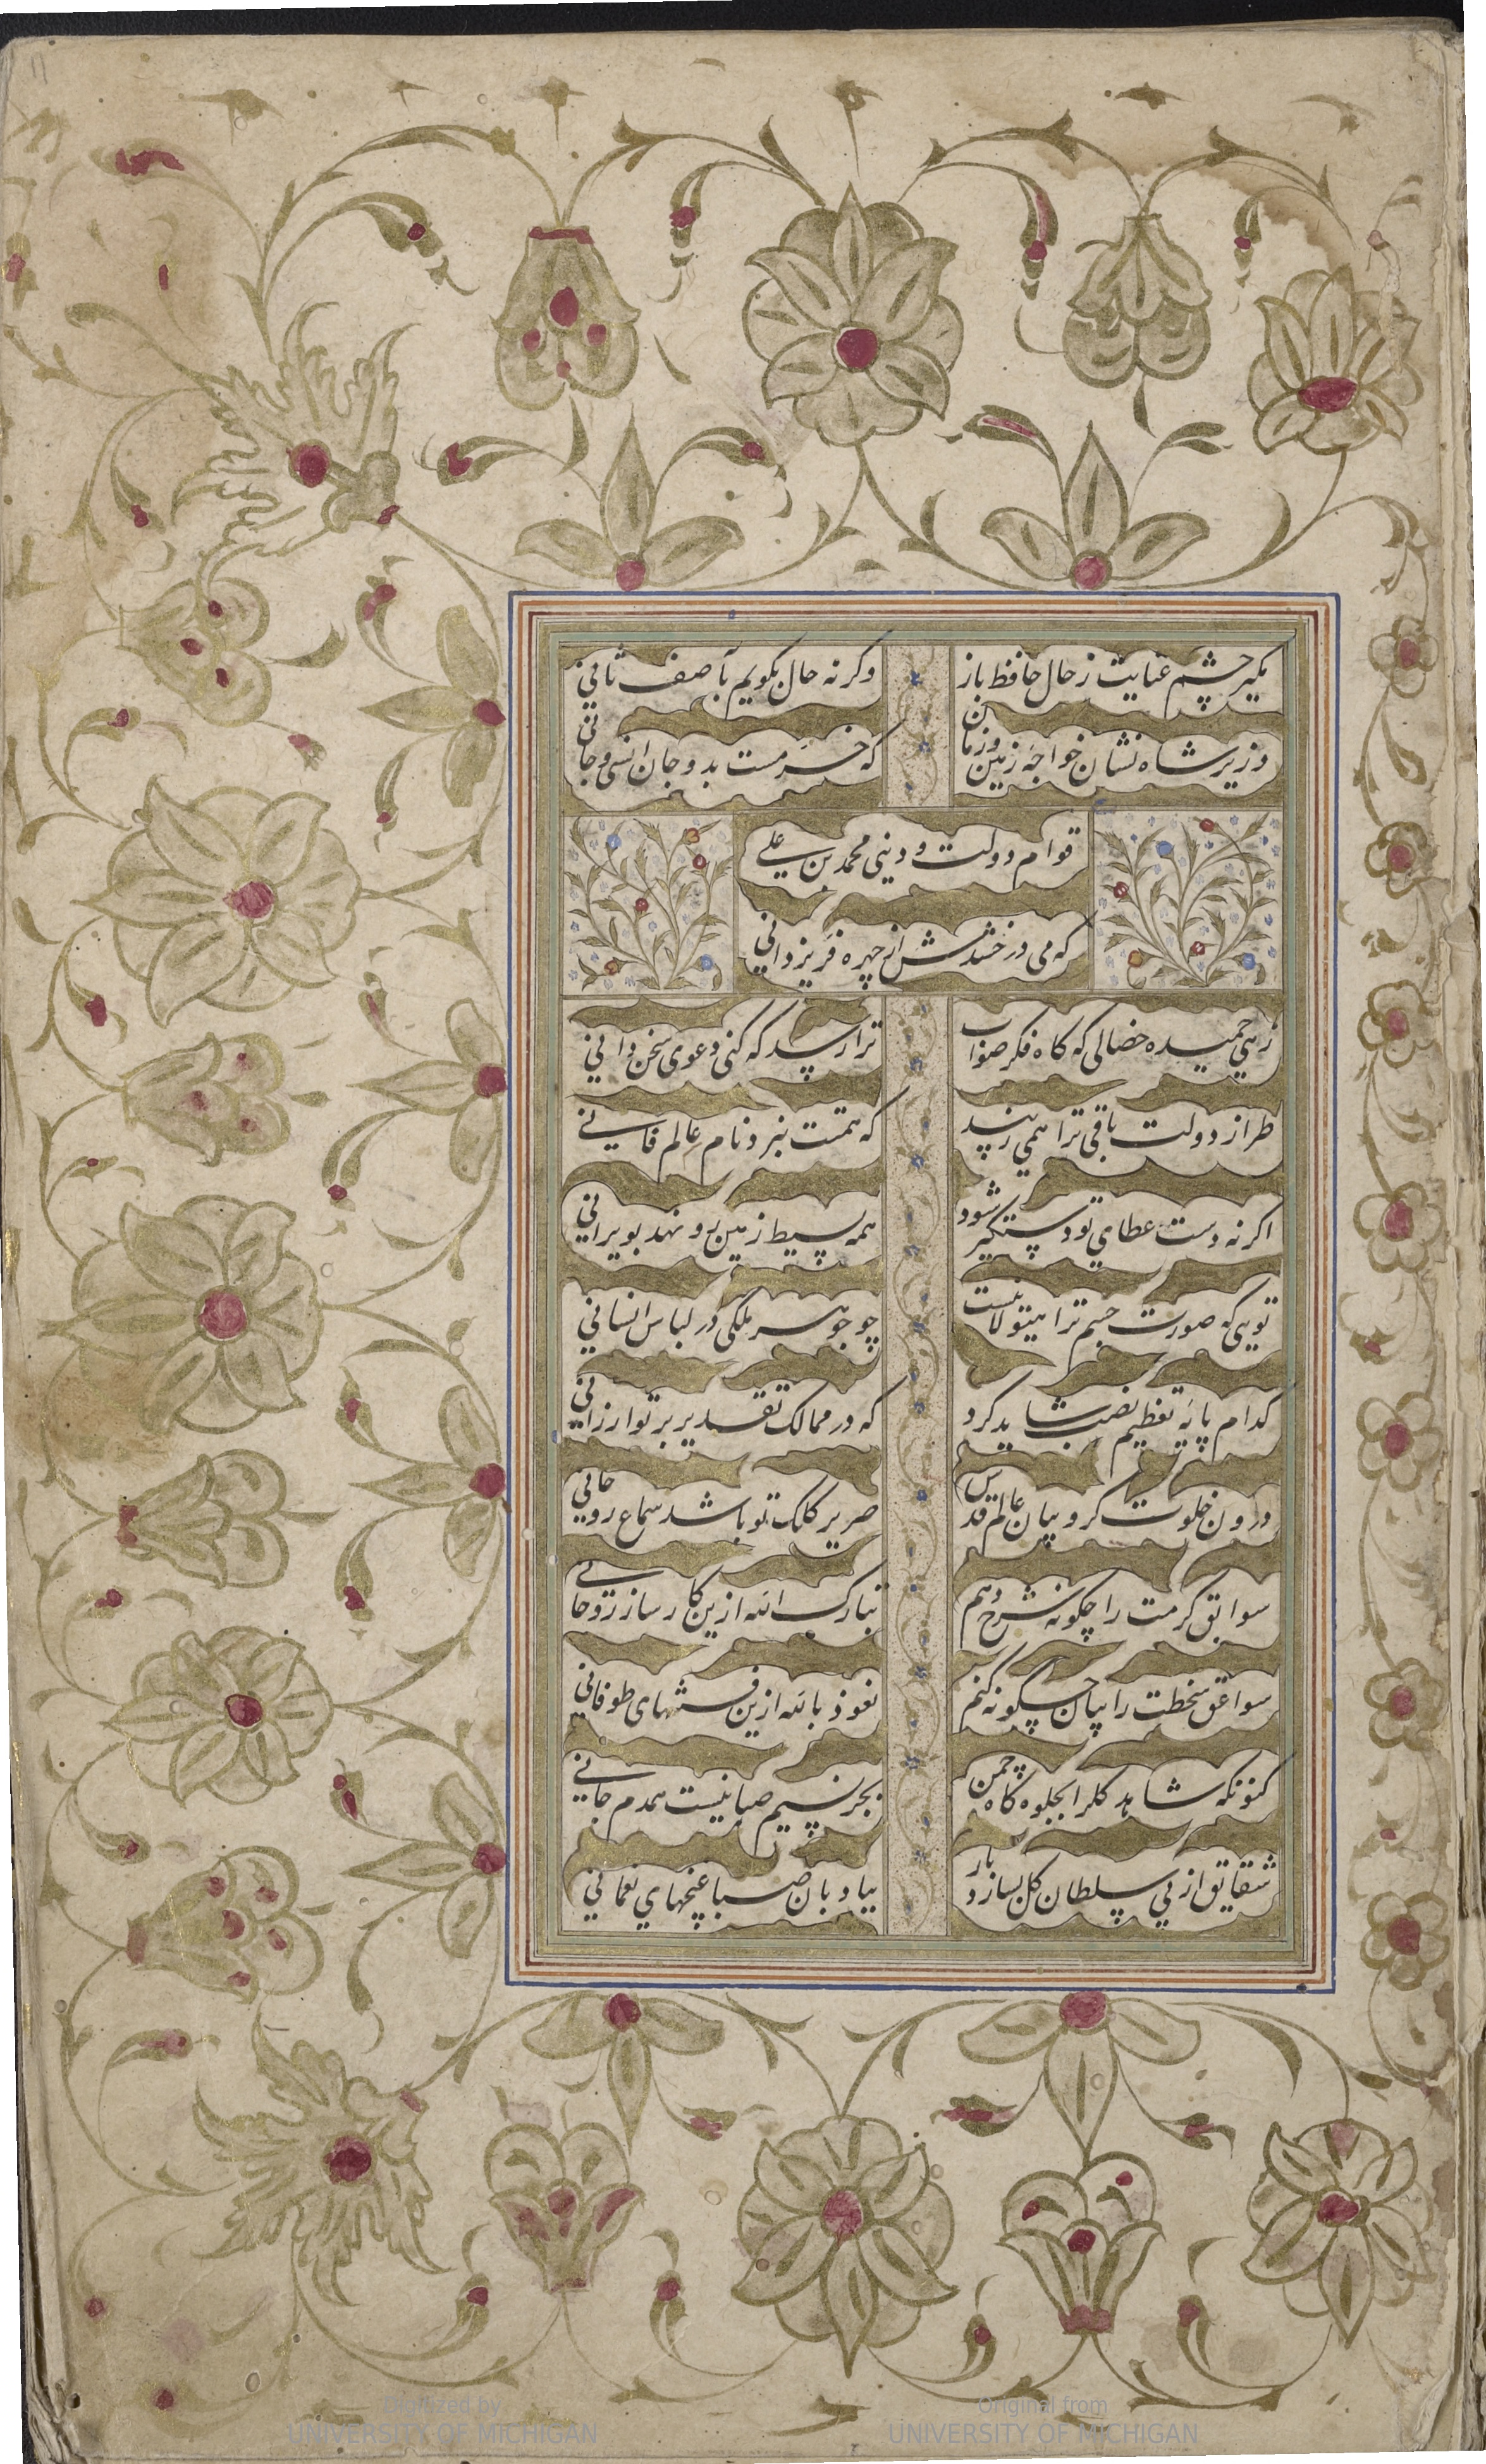 11
مکیر چشم عنایت ز حال حافظ باز
وکرنه حال بکویم بآصف ثانی
وزیر شاه نشان خواجه زمین و زمان
که خرمست بدو جان انسی و جانی
قوام دولت و دینی محمد بن علی
که می درخشدش از چهره فر یزدانی
زهی حمیده خصالی که کاه فکر صواب
ترا رسد که کنی دعوی سخن دانی
طراز دولت باقی ترا همی زیبد
که همتت نبرد نام عالم فانی
اکرنه دست عطای تو دستکیر شود
همه بسیط زمین رو نهد بویرانی
تویی که صورت جسم ترا هیولا نیست
چو جوهر ملکی در لباس انسانی
کدام پایه تعظیم نصب شاید کرد
که در ممالک تقدیر برتر ارزانی
درون خلوت کروبیان عالم قدس
صریر کلک تو باشد سماع روحانی
سوابق کرمت را چکونه شرح دهم
تبارک الله ازین کار ساز روحانی
سواعق سخطت را بیان چکونه کنم
نعوذ بالله ازین فتنهای طوفانی
کنونکه شاهد کلرا بجلوه کاه چمن
بجز نسیم صبا نیست همدم جانی
شقایق از پی سلطان کل بسازد باز
بباد بان صبا غنچهای نعمانی
Digitized by
UNIVERSITY OF MICHIGAN
Original from
UNIVERSITY OF MICHIGAN